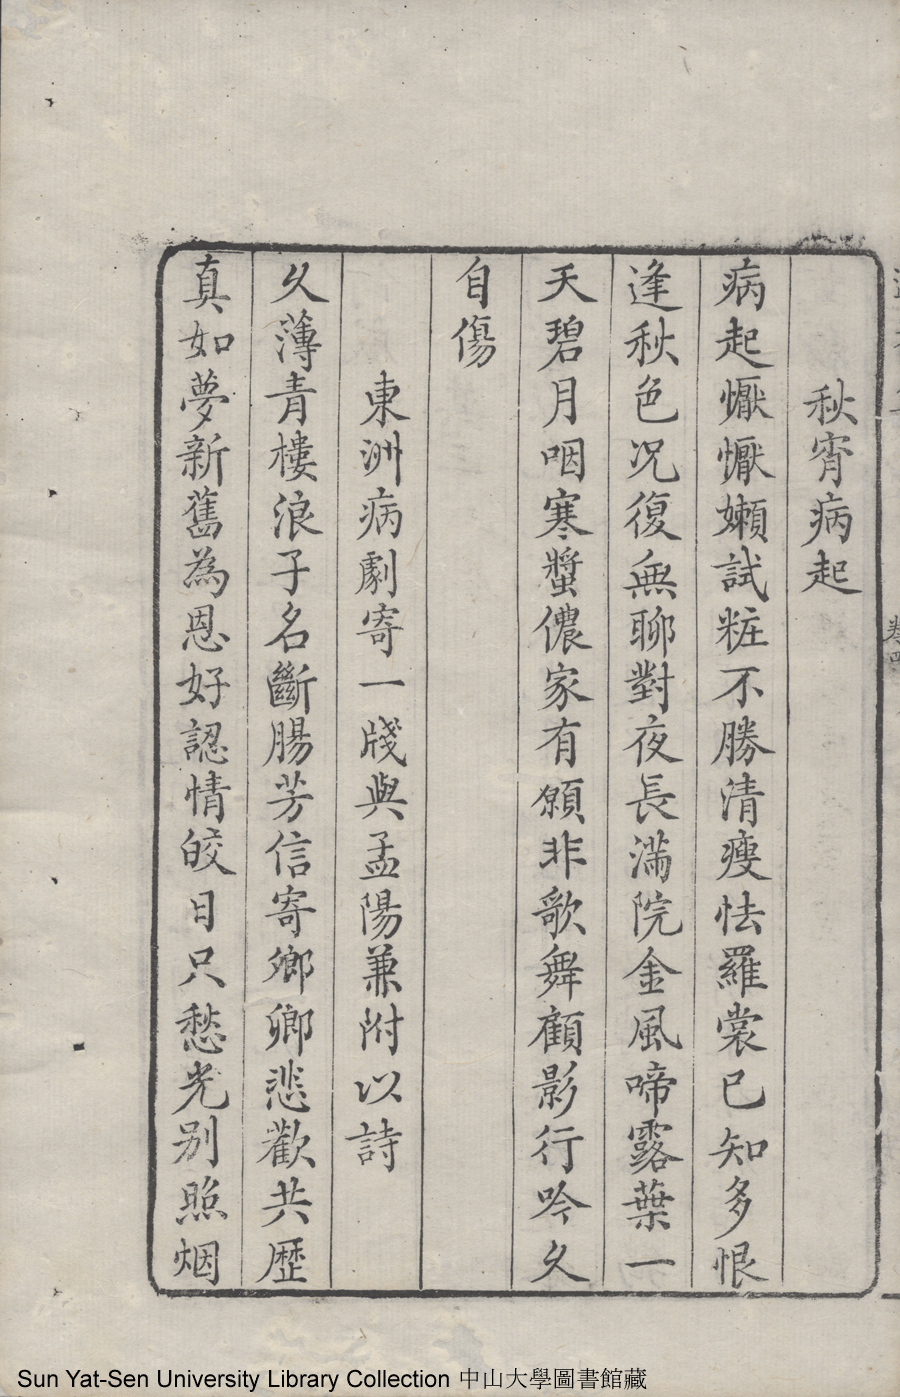 卷四
秋宵病起
病起懨懨嬾試粧不勝清瘦怯羅裳已知多恨
逢秋色况復無聊對夜長滿院金風啼露葉一
天碧月咽寒螿儂家有願非歌舞顧影行吟久
自傷
東洲病劇寄一牋與孟陽兼附以詩
久薄青樓浪子名斷腸芳信寄鄉卿悲歡共歷
真如夢新舊為恩好認情皎日只愁光別照烟
Sun Yat-Sen University Library Collection 中山大學圖書館藏